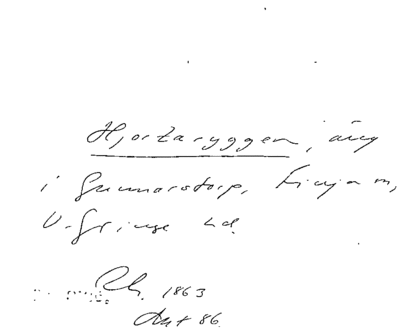 Hjortaryggen, äng
i Gunnarstorp, Finja sn,
V. Göinge hd.
Rh. 1863
Akt 86